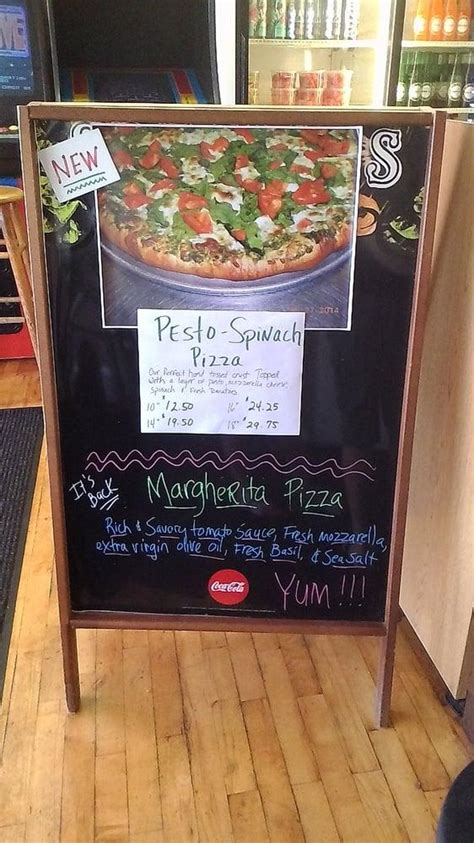 S
NEW
2014
Pesto-Spinach
Pizza
Our Perfect hand tossed crust Topped
with a layer of pesto, mozzarella cheese,
spinach & Fresh Tomatoes
10" $12.50 16" $24.25
14" $19.50 18" $29.75
It's
Back
Margherita Pizza
Rich & Savory tomato Sauce, Fresh mozzarella,
extra virgin olive oil, Fresh Basil, & Sea Salt
Coca-Cola
YUM!!!